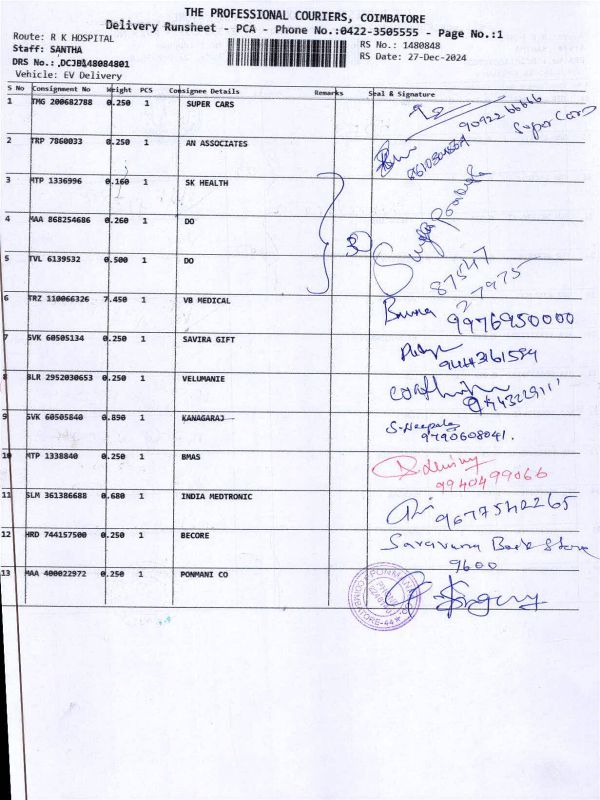 THE PROFESSIONAL COURIERS, COIMBATORE
Delivery Runsheet - PCA - Phone No.:0422-3505555 - Page No.:1
Route: R K HOSPITAL
Staff: SANTHA
RS No.: 1480848
RS Date: 27-Dec-2024
Vehicle: EV Delivery
S No Consignment No Weight PCS Consignee Details Remarks Seal & Signature
1 TMG 200682788 0.250 1 SUPER CARS
90922 66666
Super Cars
2 TRP 7860033 0.250 1 AN ASSOCIATES
3 MTP 1336996 0.160 1 SK HEALTH
4 MAA 868254686 0.260 1 DO
3
5 TVL 6139532 0.500 1 DO
87547
27975
6 TRZ 110066326 7.450 1 VB MEDICAL
9976950000
7 SVK 60505134 0.250 1 SAVIRA GIFT
9443161594
8 BLR 2952030653 0.250 1 VELUMANIE
9 SVK 60505840 0.890 1 KANAGARAJ
9790608041.
10 MTP 1338840 0.250 1 BMAS
9940499066
11 SLM 361386688 0.680 1 INDIA MEDTRONIC
9677542265
12 HRD 744157500 0.250 1 BECORE
Saravana Book Store
9600
13 MAA 400022972 0.250 1 PONMANI CO